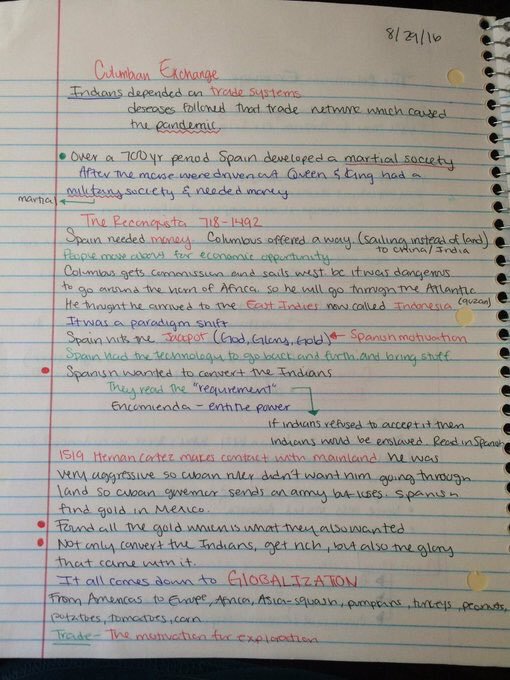 8/29/16
Columban Exchange
Indians depended on trade systems
deseases followed that trade network which caused
the pandemic
• Over a 700 yr period Spain developed a martial society
After the morse were driven out Queen & King had a
military society & needed money
martial
The Reconquista 718-1492
Spain needed money. Columbus offered a way. (sailing instead of land)
to China/India
People move about for economic opportunity
Columbus gets commission and sails west bc it was dangerous
to go around the horn of Africa. so he will go through the Atlantic
He thought he arrived to the East Indies now called Indonesia
It was a paradigm shift
Spain hits the Jackpot (God, Glory, Gold) ← Spanish motivation
Spain had the technology to go back and forth and bring stuff
• Spanish wanted to convert the Indians
They read the "requirement"
Encomienda - entitle power
If indians refused to accept it then
Indians would be enslaved. Read in Spanish
1519 Hernan Cortez makes contact with mainland. he was
very aggressive so cuban ruler didn't want him going through
land so cuban governor sends an army but loses. Spanish
find gold in Mexico.
• Found all the gold which is what they also wanted
• Not only convert the Indians, get rich, but also the glory
that came with it.
It all comes down to GLOBALIZATION
From Americas to Europe, Africa, Asia - squash, pumpkins, turkeys, peanuts,
potatoes, tomatoes, corn
Trade - The motivation for exploration